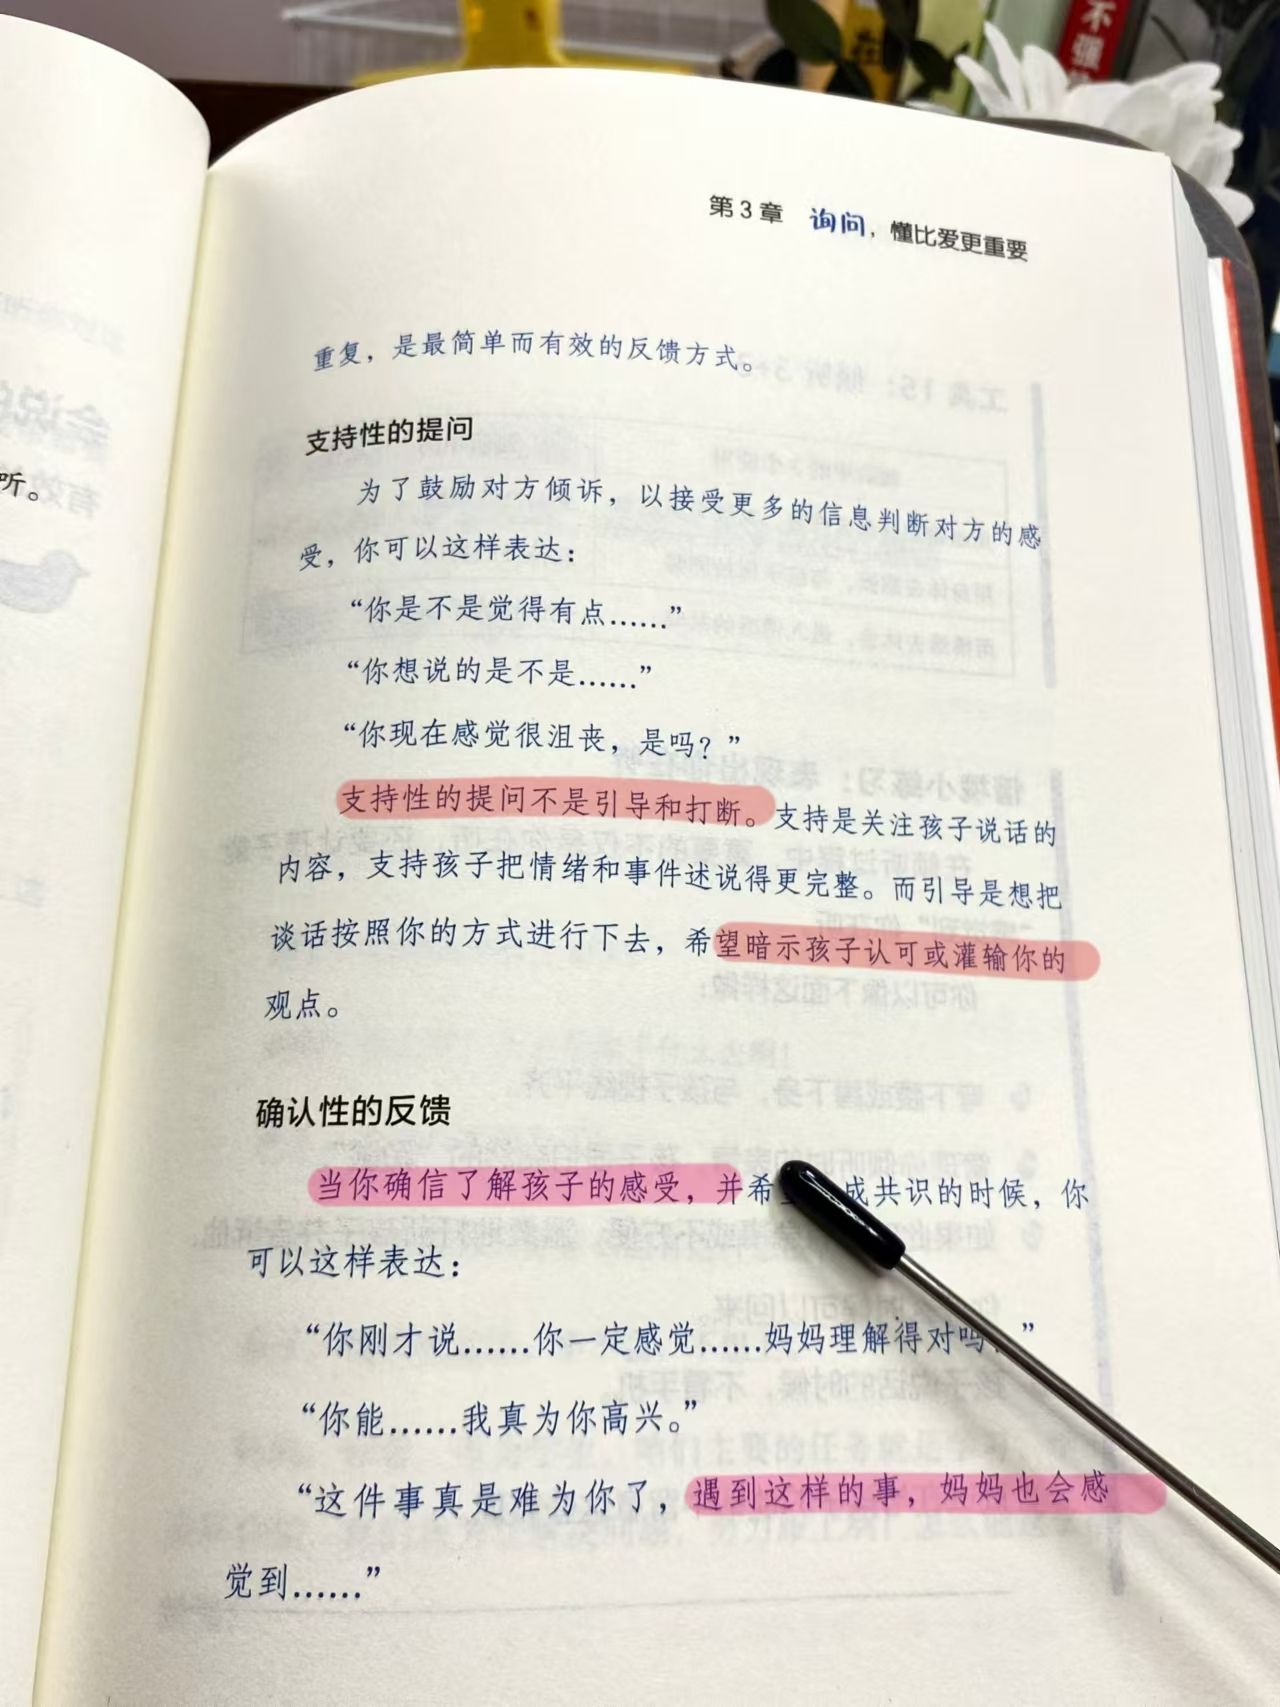 不强
在
第3章 询问，懂比爱更重要
重复，是最简单而有效的反馈方式。
支持性的提问
为了鼓励对方倾诉，以接受更多的信息判断对方的感
受，你可以这样表达：
“你是不是觉得有点……”
“你想说的是不是……”
“你现在感觉很沮丧，是吗？”
支持性的提问不是引导和打断。支持是关注孩子说话的
内容，支持孩子把情绪和事件述说得更完整。而引导是想把
谈话按照你的方式进行下去，希望暗示孩子认可或灌输你的
观点。
确认性的反馈
当你确信了解孩子的感受，并希 成共识的时候，你
可以这样表达：
“你刚才说……你一定感觉……妈妈理解得对吗 ”
“你能……我真为你高兴。”
“这件事真是难为你了，遇到这样的事，妈妈也会感
觉到……”
听。